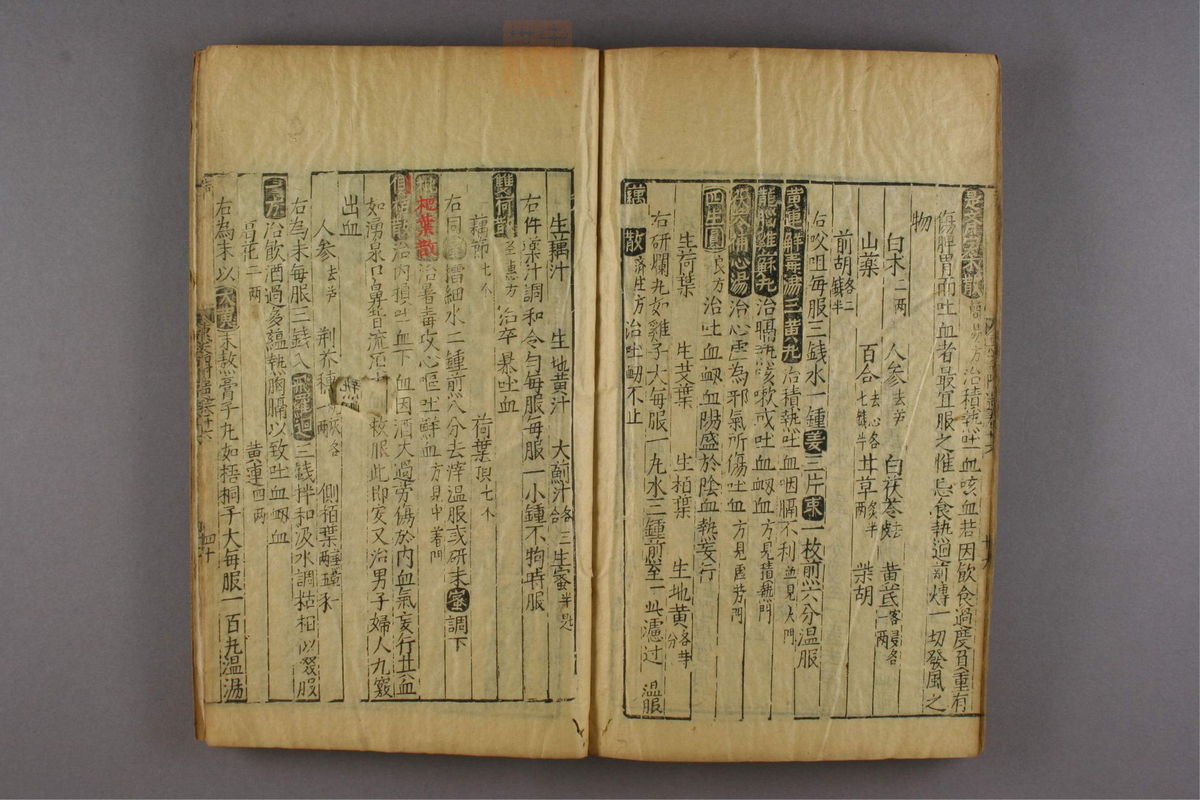 是齋白朮散 簡易方 治積熱吐血咳血若因飲食過度負重有
傷脾胃而吐血者最宜服之惟忌食熱麵煎煿一切發風之
物
白朮二兩 人參去芦 白茯苓去皮 黃芪蜜浸各一兩
山藥 百合去心各七錢半 甘草炙半兩 柴胡
前胡各二錢半
右㕮咀每服三錢水一鍾姜三片東一枚煎六分溫服
黃連觧毒湯三黃丸治積熱吐血咽膈不利並見火門
龍腦雞蘇丸 治膈熱咳嗽或吐血衂血方見積熱門
茯苓補心湯 治心虛為邪氣所傷吐血方見虛勞門
四生圓 良方 治吐血衂血陽盛於陰血熱妄行
生荷葉 生艾葉 生柏葉 生地黃各等分
右研爛丸如雞子大每服一丸水三鍾煎至一 濾过 溫服
藕 散 濟生方 治吐衂不止
生藕汁 生地黃汁 大薊汁各三合 生蜜半匙
右件藥汁調和令勻每服每服一小鍾不拘時服
雙荷散 圣惠方 治卒暴吐血
藕節七个 荷葉頂七个
右同 擂細水二鍾煎八分去滓溫服或研末蜜調下
枇杷葉散 治暑毒攻心嘔吐鮮血方見中暑門
側柏散 治內損吐血下血因酒大過劳傷於內血氣妄行其血
如湧泉口鼻皆流 救服此即安又治男子婦人九竅
出血
人参去芦 荆芥穗 一兩 側柏葉
右為末每服三錢入飛羅麪三錢拌和汲水調 相似啜服
治飲酒過多蘊熱胸膈以致吐血衂血
葛花二兩 黃連四兩
右為末以大黃末熬膏子丸如梧桐子大每服一百丸溫湯
四十